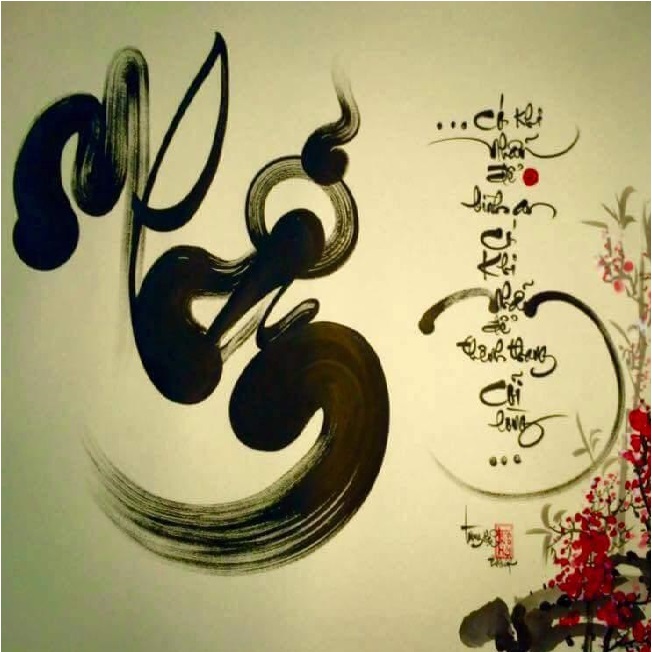 Nhẫn
... Có Khi
nhẫn
để
bình an
Có
Khi
nhẫn
để
thênh thang
Cõi
lòng
...